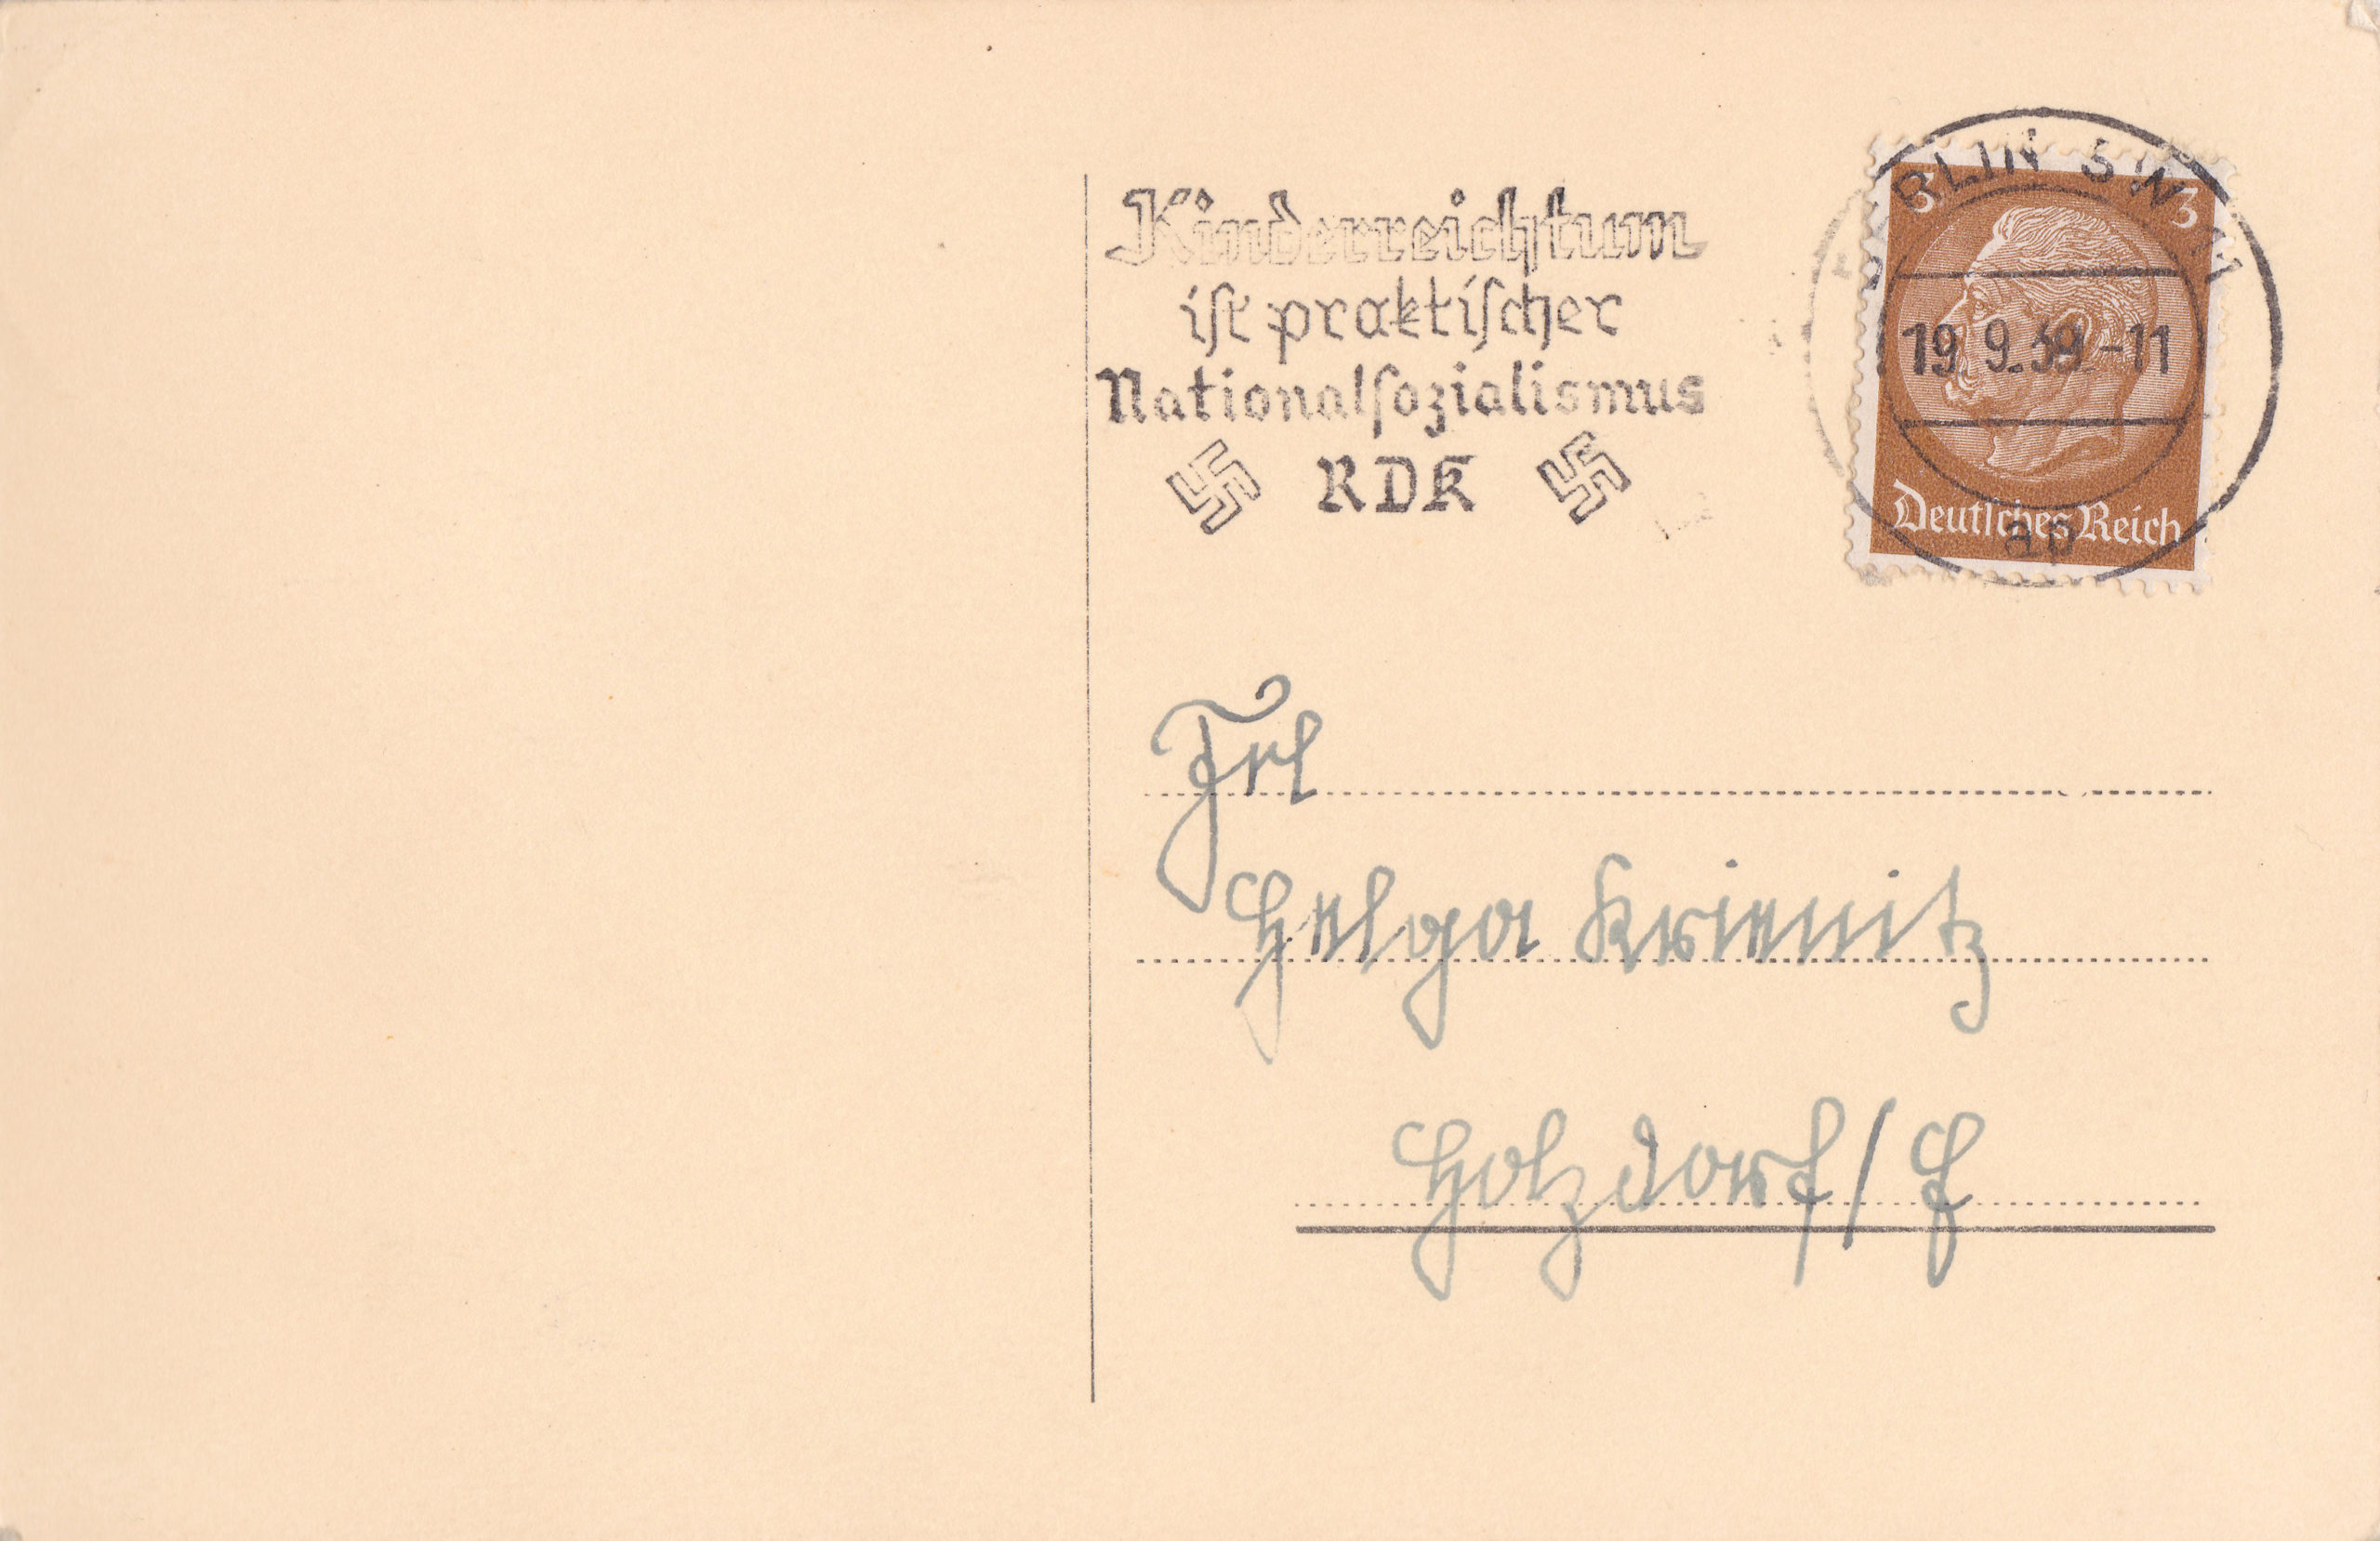 Kinderreichtum
iſt praktiſcher
Nationalſozialismus
RDK
BERLIN SW 11
3 3
19.9.39.-11
Deutſches Reich
ap
Frl
Helga Krienitz
Holzdorf / E